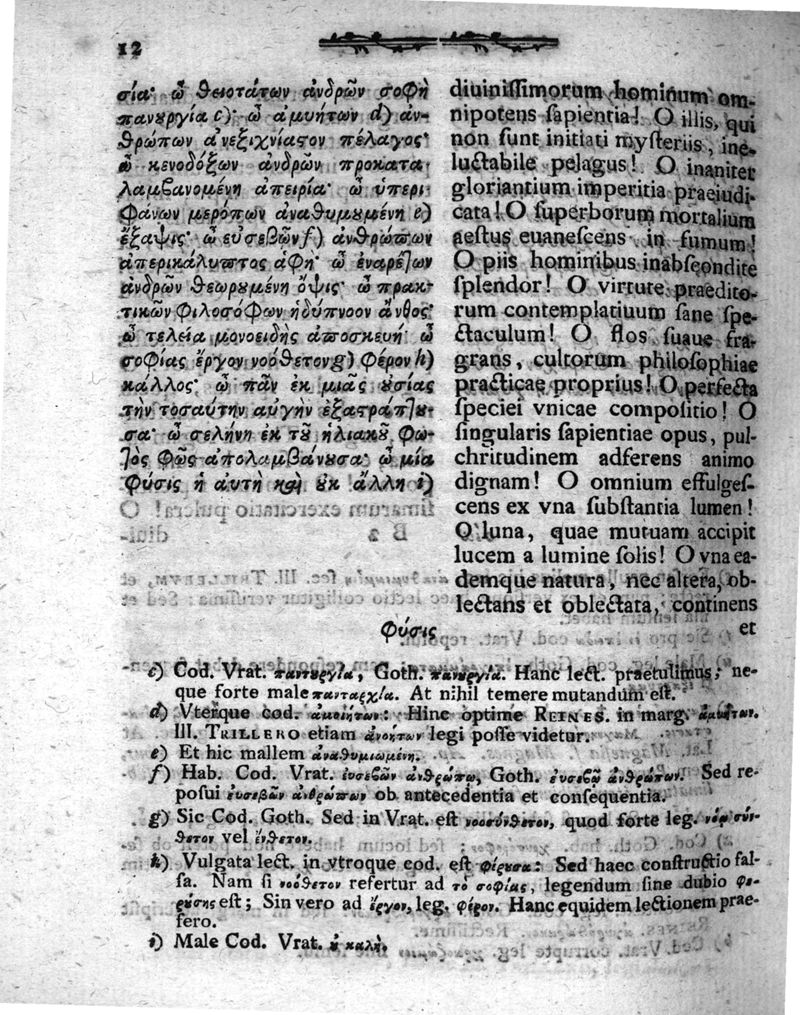 12
σία· ὦ θειοτάτων ἀνδρῶν σοφὴ
πανουργία c)· ὦ ἀμυήτων d) ἀν-
θρώπων ἀνεξιχνίαστον πέλαγος·
ὦ κενοδόξων ἀνδρῶν προκατα-
λαμβανομένη ἀπειρία· ὦ ὑπερι-
φάνων μερόπων ἀναθυμουμένη e)
ἔξαψις· ὦ εὐσεβῶν f) ἀνθρώπων
ἀπερικάλυπτος ἁφή· ὦ ἐναρέτων
ἀνδρῶν θεωρουμένη ὄψις· ὦ πρακ-
τικῶν φιλοσόφων ἡδύπνοον ἄνθος·
ὦ τελεία μονοειδὴς ἀποσκευή· ὦ
σοφίας ἔργον νοόθετον g) φέρον h)
κάλλος· ὦ πᾶν ἐκ μιᾶς οὐσίας
τὴν τοσαύτην αὐγὴν ἐξαστράπτου-
σα· ὦ σελήνη ἐκ τοῦ ἡλιακοῦ φω-
τὸς φῶς ἀπολαμβάνουσα· ὦ μία
φύσις ἡ αὐτὴ καὶ οὐκ ἄλλη i)
φύσις
diuinissimorum hominum om-
nipotens sapientia! O illis, qui
non sunt initiati mysteriis, ine-
luctabile pelagus! O inaniter
gloriantium imperitia praeiudi-
cata! O superborum mortalium
aestus euanescens in fumum!
O piis hominibus inabscondite
splendor! O virtute praedito-
rum contemplatiuum sane spe-
ctaculum! O flos suaue fra-
grans, cultorum philosophiae
practicae proprius! O perfecta
speciei vnicae compositio! O
singularis sapientiae opus, pul-
chritudinem adferens animo
dignam! O omnium effulges-
cens ex vna substantia lumen!
O luna, quae mutuam accipit
lucem a lumine solis! O vna ea-
demque natura, nec altera, ob-
lectans et oblectata, continens
et
c) Cod. Vrat. παντουργία, Goth. πανουργία. Hanc lect. praetulimus, ne-
que forte male πανταρχία. At nihil temere mutandum est.
d) Vterque cod. ἀμοιήτων: Hinc optime REINES. in marg. ἀμυήτων.
Ill. TRILLERO etiam ἀνοήτων legi posse videtur.
e) Et hic mallem ἀναθυμιωμένη.
f) Hab. Cod. Vrat. εὐσεβῶν ἀνθρώπω, Goth. εὐσεβοῦ ἀνθρώπων. Sed re-
posui εὐσεβῶν ἀνθρώπων ob antecedentia et consequentia.
g) Sic Cod. Goth. Sed in Vrat. est νοοσύνθετον, quod forte leg. νόῳ σύν-
θετον vel ἔνθετον.
h) Vulgata lect. in vtroque cod. est φέρουσα: Sed haec constructio fal-
sa. Nam si νοόθετον refertur ad τὸ σοφίας, legendum sine dubio φε-
ρούσης est; Sin vero ad ἔργον, leg. φέρον. Hanc equidem lectionem prae-
fero.
i) Male Cod. Vrat. οὐ καλή.